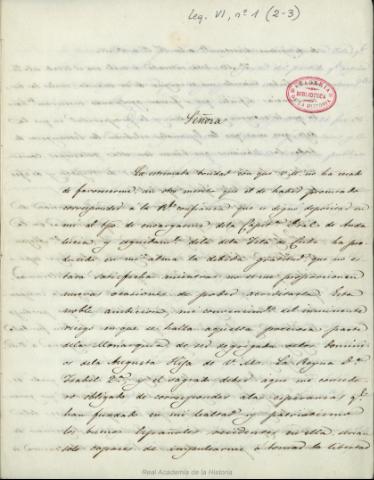 Leg. VI, nº 1 (2-3)
ACADEMIA
BIBLIOTECA
DE LA HISTORIA
Señora
La estremada bondad con que V. M. no ha cesado
de favorecerme, sin otro merito que el de haber procurado
corresponder a la Rl. confianza que se digno depositar en
mi al tpo. de encargarme de la Capitª. Gral. de Anda
lucia, y seguidamte. de la de la Isla de Cuba ha pro
ducido en mi alma la debida gratitud que no es
tará satisfecha mientras no se me proporcionen
nuevas ocasiones de poder acreditarla. Esta
noble ambicion, mi convencimto. del inminente
riesgo en que se halla aquella preciosa parte
de la Monarquia de ser segregada de los Dominios
de la Augusta Hija de V. M. La Reyna Dª.
Isabel 2ª. y el sagrado deber a que me concreto
obligado de corresponder a las esperanzas qe.
han fundado en mi lealtad y patriotismo
los buenos Españoles residentes en ella, eran
solo capaces de impulsarme a tomar la libertad
Real Academia de la Historia